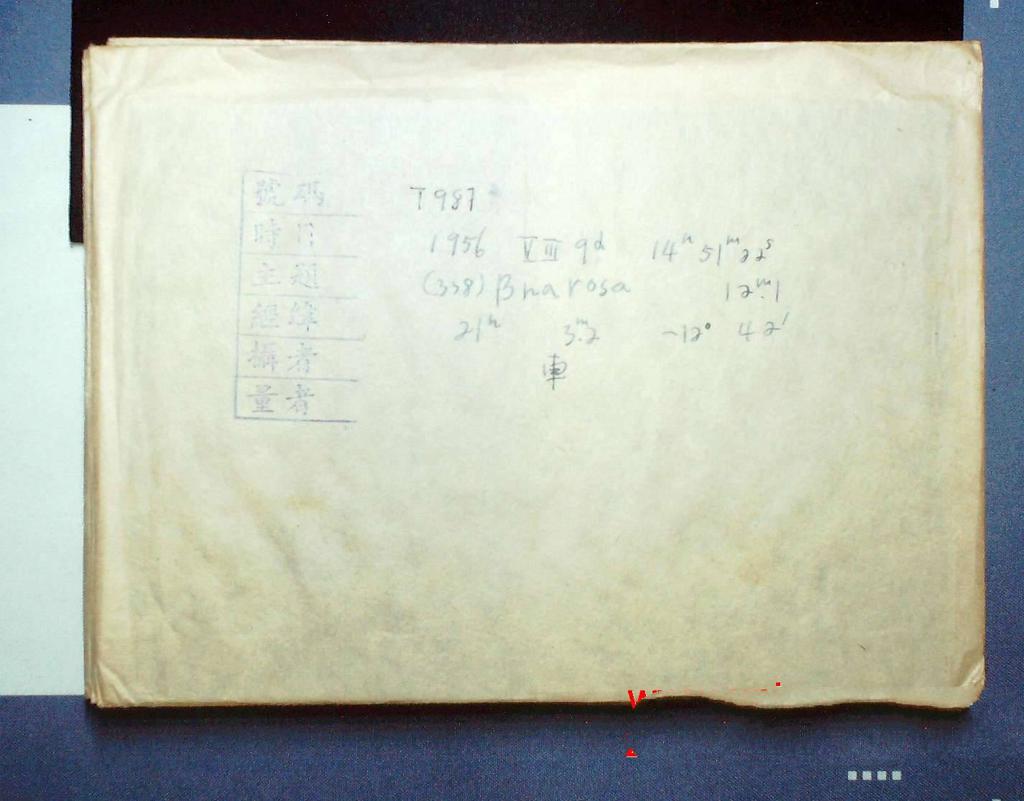 號碼 T987
時日 1956 VIII 9d 14h 51m 22s
主題 (338) Bnarosa 12m.1
經緯 21h 3m.2 -12° 42'
攝者 車
量者